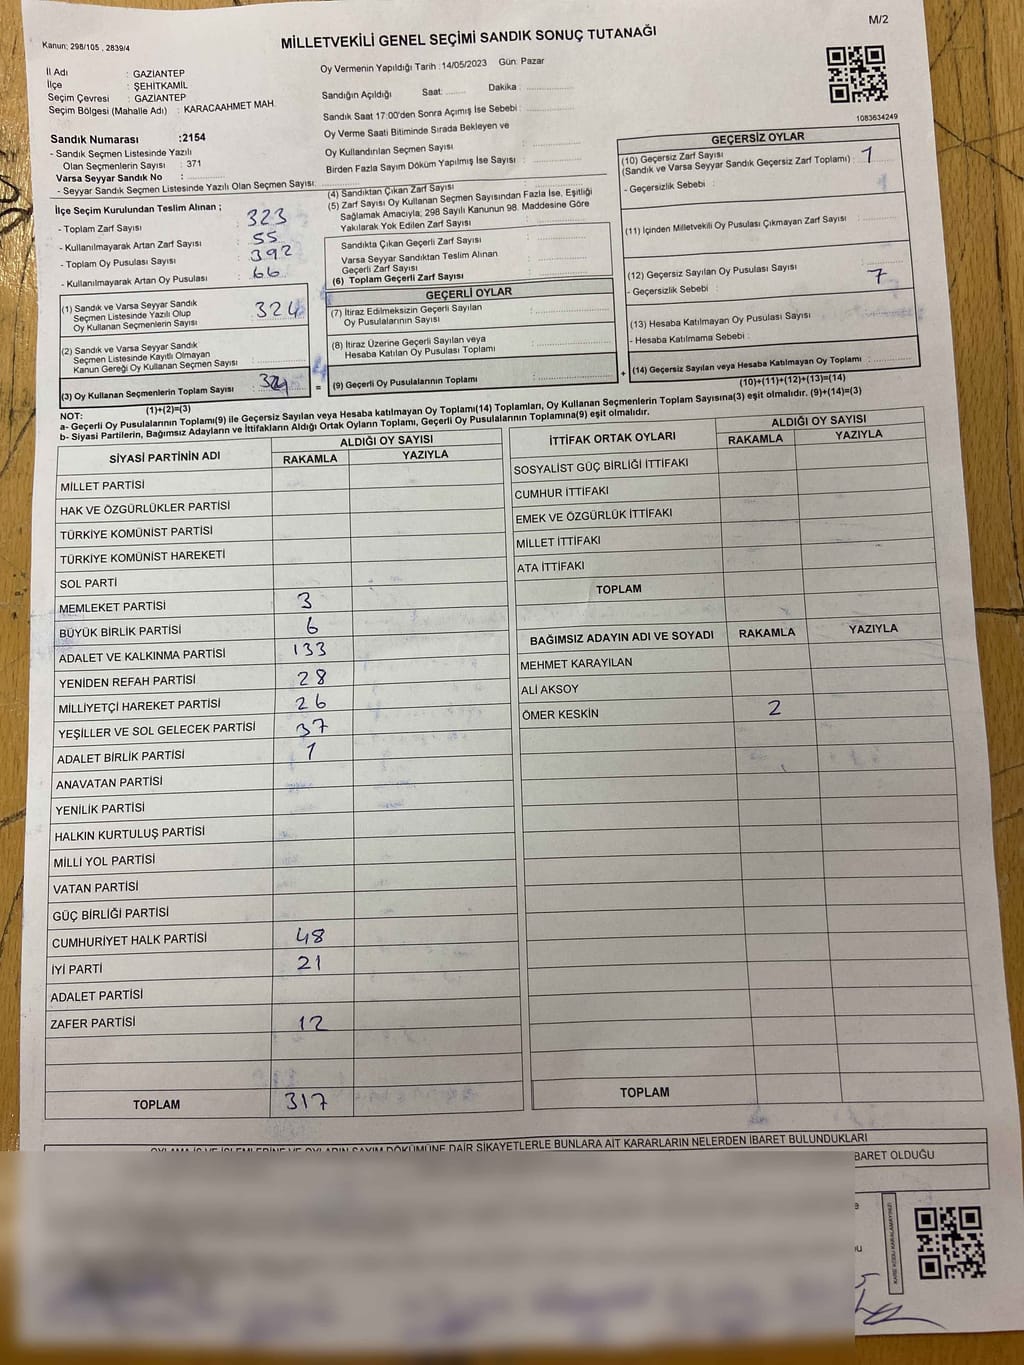 M/2
Kanun; 298/105 , 2839/4
MİLLETVEKİLİ GENEL SEÇİMİ SANDIK SONUÇ TUTANAĞI
İl Adı : GAZIANTEP
İlçe : ŞEHİTKAMİL
Seçim Çevresi : GAZİANTEP
Seçim Bölgesi (Mahalle Adı) : KARACAAHMET MAH.
Sandık Numarası :2154
- Sandık Seçmen Listesinde Yazılı
Olan Seçmenlerin Sayısı : 371
Varsa Seyyar Sandık No :
- Seyyar Sandık Seçmen Listesinde Yazılı Olan Seçmen Sayısı:
Oy Vermenin Yapıldığı Tarih :14/05/2023 Gün: Pazar
Sandığın Açıldığı Saat: ........ Dakika :
Sandık Saat 17:00'den Sonra Açımış İse Sebebi :
Oy Verme Saati Bitiminde Sırada Bekleyen ve
Oy Kullandırılan Seçmen Sayısı :
Birden Fazla Sayım Döküm Yapılmış İse Sayısı :
1083634249
İlçe Seçim Kurulundan Teslim Alınan ;
- Toplam Zarf Sayısı : 323
- Kullanılmayarak Artan Zarf Sayısı : 55
- Toplam Oy Pusulası Sayısı : 392
- Kullanılmayarak Artan Oy Pusulası : 66
(1) Sandık ve Varsa Seyyar Sandık
Seçmen Listesinde Yazılı Olup
Oy Kullanan Seçmenlerin Sayısı : 324
(2) Sandık ve Varsa Seyyar Sandık
Seçmen Listesinde Kayıtlı Olmayan
Kanun Gereği Oy Kullanan Seçmen Sayısı :
(3) Oy Kullanan Seçmenlerin Toplam Sayısı : 324 =
(1)+(2)=(3)
(4) Sandıktan Çıkan Zarf Sayısı :
(5) Zarf Sayısı Oy Kullanan Seçmen Sayısından Fazla İse, Eşitliği
Sağlamak Amacıyla; 298 Sayılı Kanunun 98. Maddesine Göre
Yakılarak Yok Edilen Zarf Sayısı :
Sandıkta Çıkan Geçerli Zarf Sayısı :
Varsa Seyyar Sandıktan Teslim Alınan
Geçerli Zarf Sayısı :
(6) Toplam Geçerli Zarf Sayısı :
GEÇERLİ OYLAR
(7) İtiraz Edilmeksizin Geçerli Sayılan
Oy Pusulalarının Sayısı :
(8) İtiraz Üzerine Geçerli Sayılan veya
Hesaba Katılan Oy Pusulası Toplamı :
(9) Geçerli Oy Pusulalarının Toplamı : +
GEÇERSİZ OYLAR
(10) Geçersiz Zarf Sayısı
(Sandık ve Varsa Seyyar Sandık Geçersiz Zarf Toplamı) : 1
- Geçersizlik Sebebi :
(11) İçinden Milletvekili Oy Pusulası Çıkmayan Zarf Sayısı :
(12) Geçersiz Sayılan Oy Pusulası Sayısı : 7
- Geçersizlik Sebebi :
(13) Hesaba Katılmayan Oy Pusulası Sayısı :
- Hesaba Katılmama Sebebi :
(14) Geçersiz Sayılan veya Hesaba Katılmayan Oy Toplamı :
(10)+(11)+(12)+(13)=(14)
NOT:
a- Geçerli Oy Pusulalarının Toplamı(9) ile Geçersiz Sayılan veya Hesaba katılmayan Oy Toplamı(14) Toplamları, Oy Kullanan Seçmenlerin Toplam Sayısına(3) eşit olmalıdır. (9)+(14)=(3)
b- Siyasi Partilerin, Bağımsız Adayların ve İttifakların Aldığı Ortak Oyların Toplamı, Geçerli Oy Pusulalarının Toplamına(9) eşit olmalıdır.
SİYASİ PARTİNİN ADI ALDIĞI OY SAYISI
RAKAMLA YAZIYLA
MİLLET PARTİSİ
HAK VE ÖZGÜRLÜKLER PARTİSİ
TÜRKİYE KOMÜNİST PARTİSİ
TÜRKİYE KOMÜNİST HAREKETİ
SOL PARTİ
MEMLEKET PARTİSİ 3
BÜYÜK BİRLİK PARTİSİ 6
ADALET VE KALKINMA PARTİSİ 133
YENİDEN REFAH PARTİSİ 28
MİLLİYETÇİ HAREKET PARTİSİ 26
YEŞİLLER VE SOL GELECEK PARTİSİ 37
ADALET BİRLİK PARTİSİ 1
ANAVATAN PARTİSİ
YENİLİK PARTİSİ
HALKIN KURTULUŞ PARTİSİ
MİLLİ YOL PARTİSİ
VATAN PARTİSİ
GÜÇ BİRLİĞİ PARTİSİ
CUMHURİYET HALK PARTİSİ 48
İYİ PARTİ 21
ADALET PARTİSİ
ZAFER PARTİSİ 12
TOPLAM 317
İTTİFAK ORTAK OYLARI ALDIĞI OY SAYISI
RAKAMLA YAZIYLA
SOSYALİST GÜÇ BİRLİĞİ İTTİFAKI
CUMHUR İTTİFAKI
EMEK VE ÖZGÜRLÜK İTTİFAKI
MİLLET İTTİFAKI
ATA İTTİFAKI
TOPLAM
BAĞIMSIZ ADAYIN ADI VE SOYADI RAKAMLA YAZIYLA
MEHMET KARAYILAN
ALİ AKSOY
ÖMER KESKİN 2
TOPLAM
OYLAMA İŞ VE İŞLEMLERİNE VE OYLARIN SAYIM DÖKÜMÜNE DAİR ŞİKAYETLERLE BUNLARA AİT KARARLARIN NELERDEN İBARET BULUNDUKLARI
BARET OLDUĞU
KARE KODU KARALAMAYINIZ!